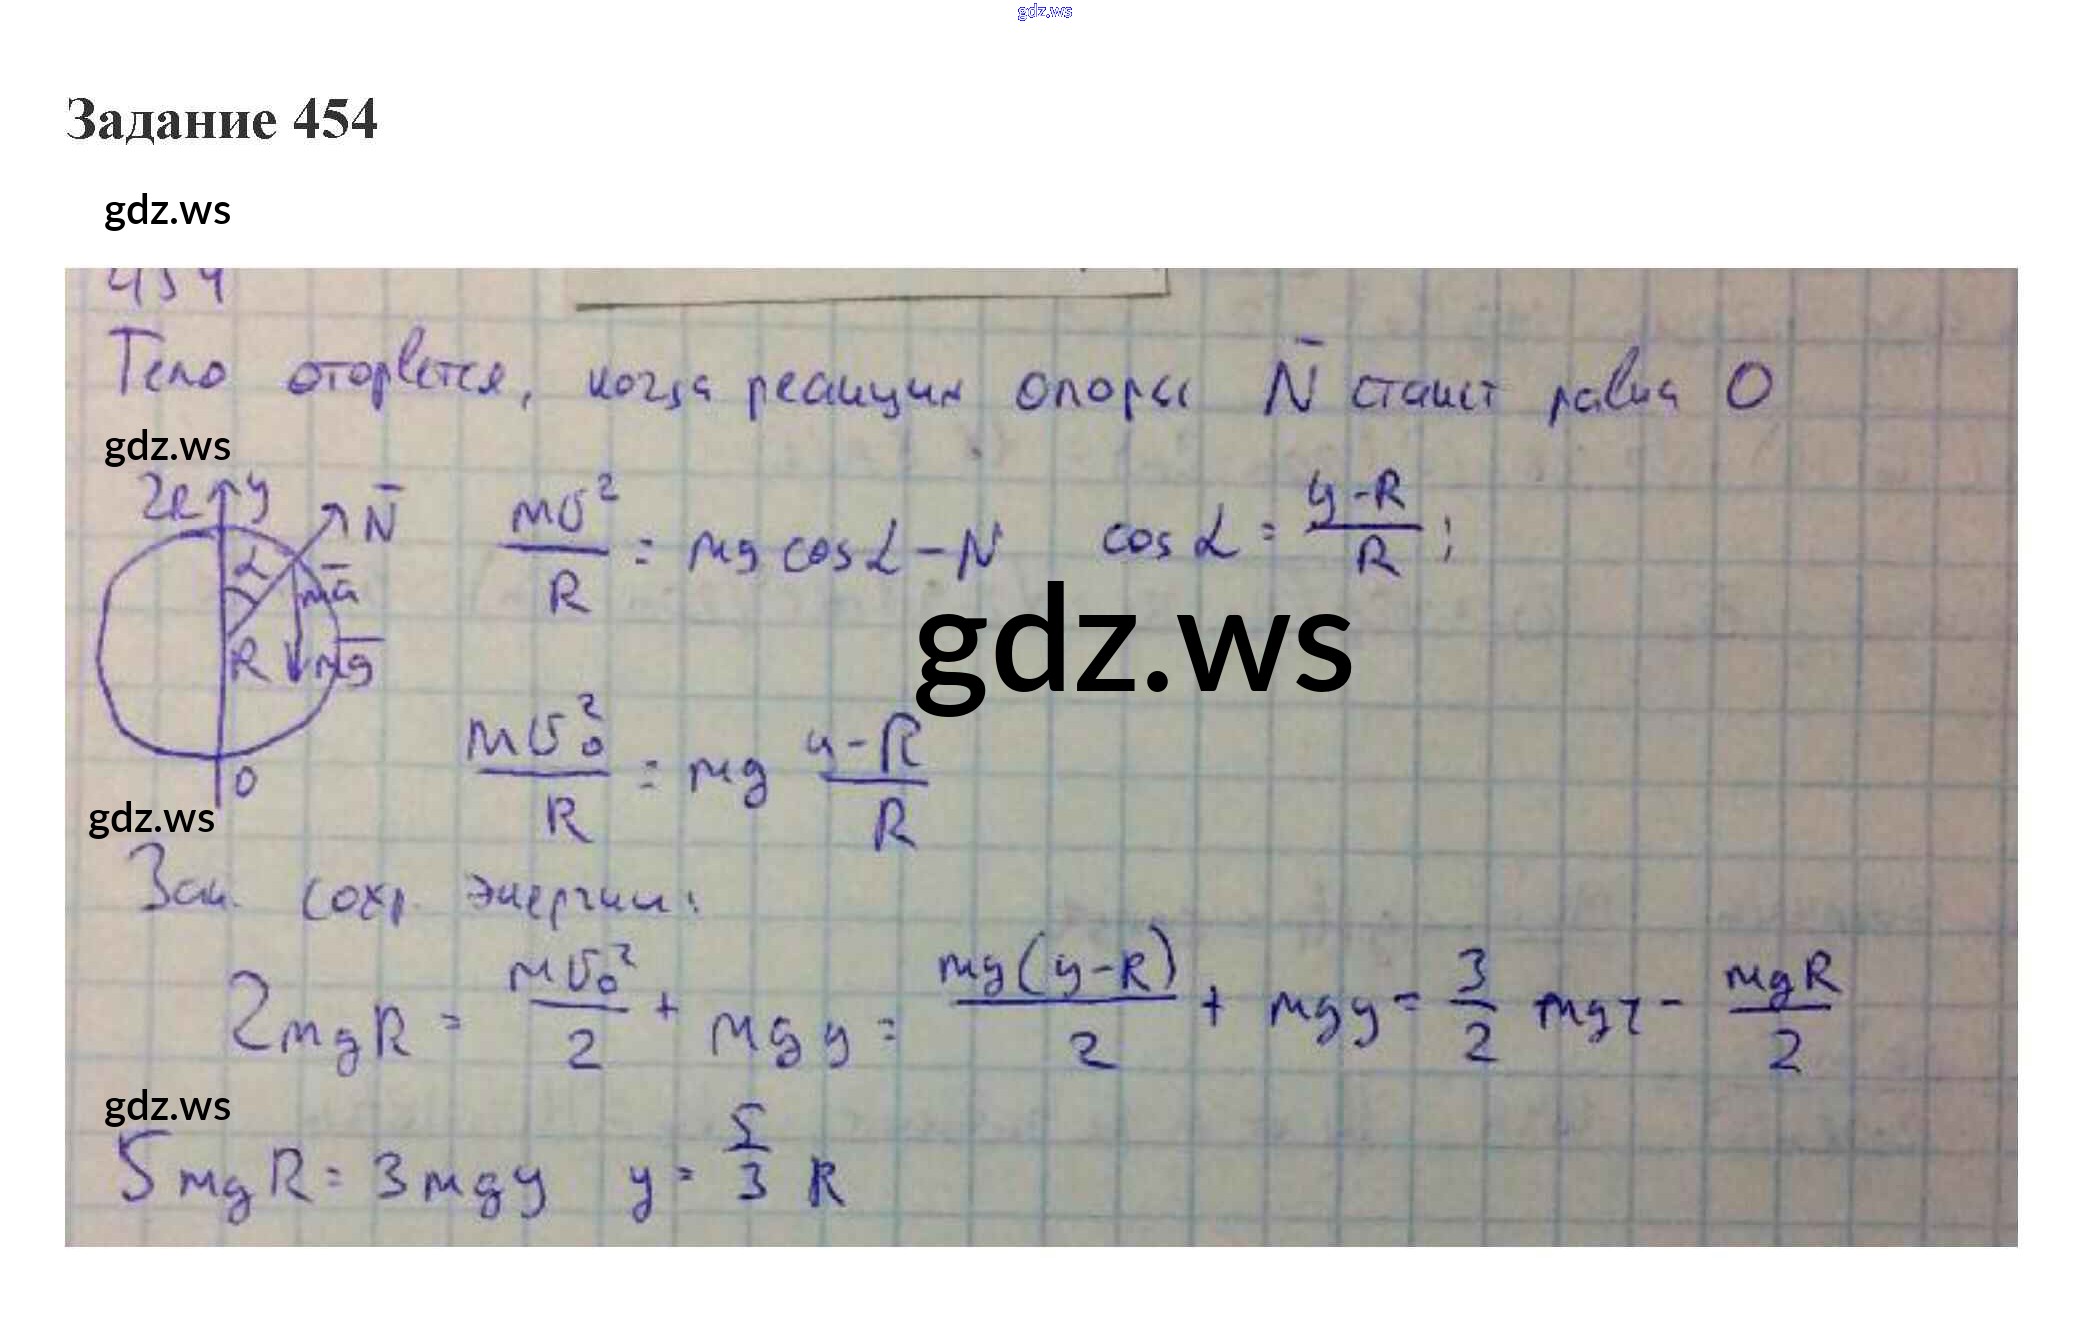 gdz.ws
Задание 454
gdz.ws
454
Тело оторвется, когда реакция опоры N̄ станет равна 0
gdz.ws
2R y N̄
α
mā
R mg
0
mv²/R = mg cos α - N cos α = (y-R)/R ;
gdz.ws
mv₀²/R = mg (y-R)/R
gdz.ws
Зак. сохр. энергии:
2mgR = mv₀²/2 + mgy = mg(y-R)/2 + mgy = 3/2 mgr - mgR/2
gdz.ws
5mgR = 3mgy y = 5/3 R